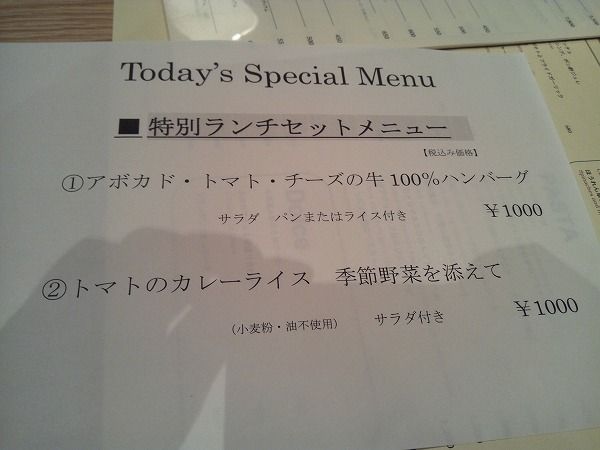 Today's Special Menu
■ 特別ランチセットメニュー
【税込み価格】
①アボカド・トマト・チーズの牛100%ハンバーグ
サラダ パンまたはライス付き ￥1000
②トマトのカレーライス 季節野菜を添えて
（小麦粉・油不使用） サラダ付き ￥1000